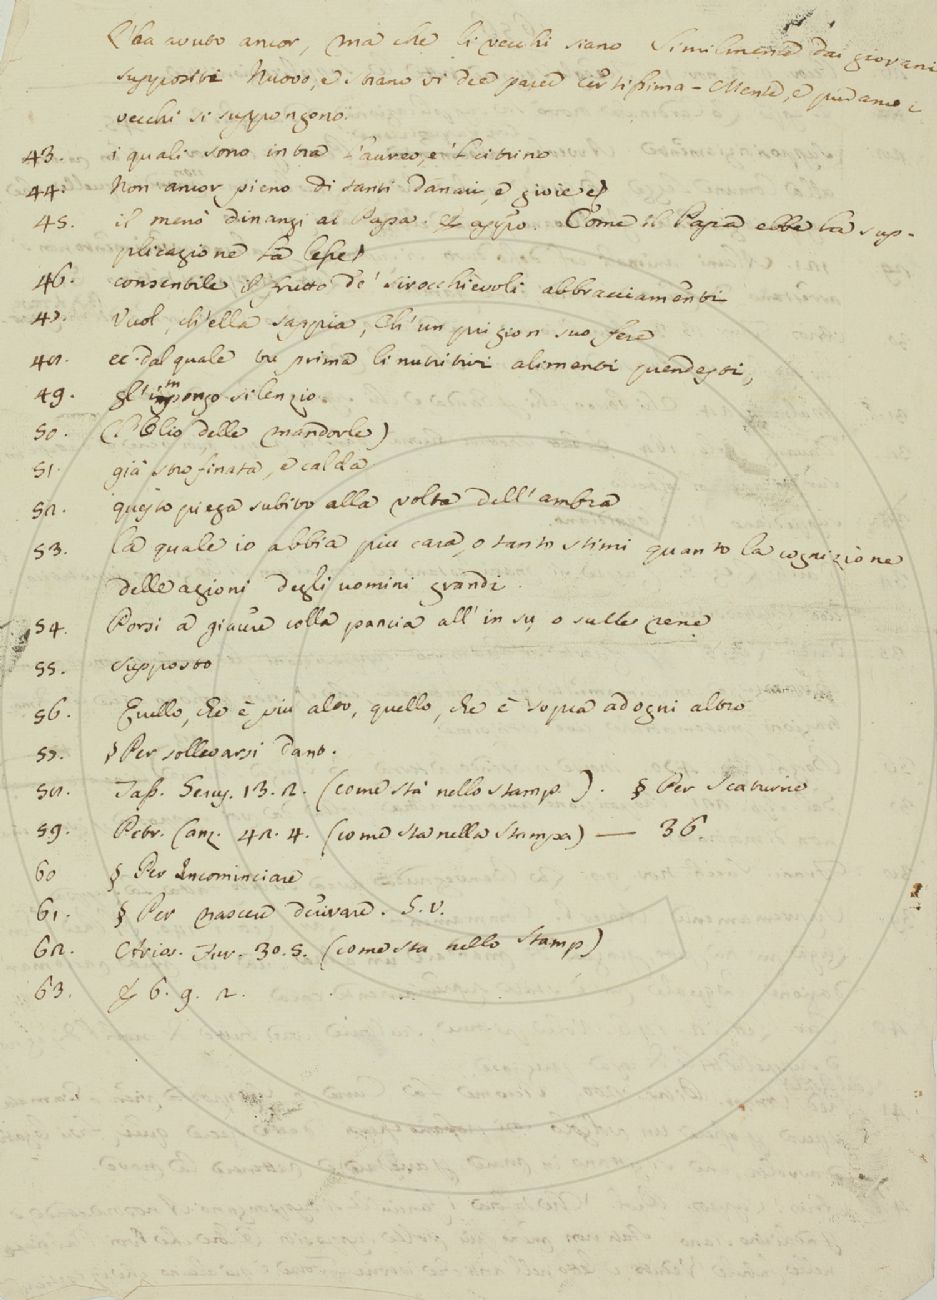 L'ha avuto ancor, ma che li vecchi siano similmente dai giovani
suppositi Nuovo, e strano vi dee parer certissima-Mente, e pur anco i
vecchi si suppongono.
43. i quali sono intra l'aureo, e 'l citrino
44. Non ancor pieno di tanti danari, e gioie
45. il menò dinanzi al Papa. & appo. Come il Papa ebbe la sup-
plicazione
46. consentile il frutto de' sirocchievoli abbracciamenti
47. Vuol, ch'ella sappia, Ch'un prigion suo
48. ec. dal quale tu prima li nutritivi alimenti prendesti,
49. gl'impongo silenzio.
50. (l'Olio delle mandorle)
51. già strofinata, e calda
52. questo piega subito alla volta dell'ambra
53. la quale io abbia piu cara, o tanto stimi quanto la cognizione
delle azioni degli uomini grandi.
54. Porsi a giacere colla pancia all'in su, o sulle rene
55. supposto
56. Quello, che è piu alto, quello, che è sopra ad ogni altro
57. § Per sollevarsi Dant.
58. Tass. Gerus. 13. 2. (come sta nello stamp). § Per Scaturire
59. Petr. Canz. 42. 4. (come sta nella stampa) — 36.
60 § Per Incominciare
61. § Per nascere derivare. S. v.
62. Arios. Fur. 30. 5. (come sta nello stamp)
63. & 6. 9. 2.